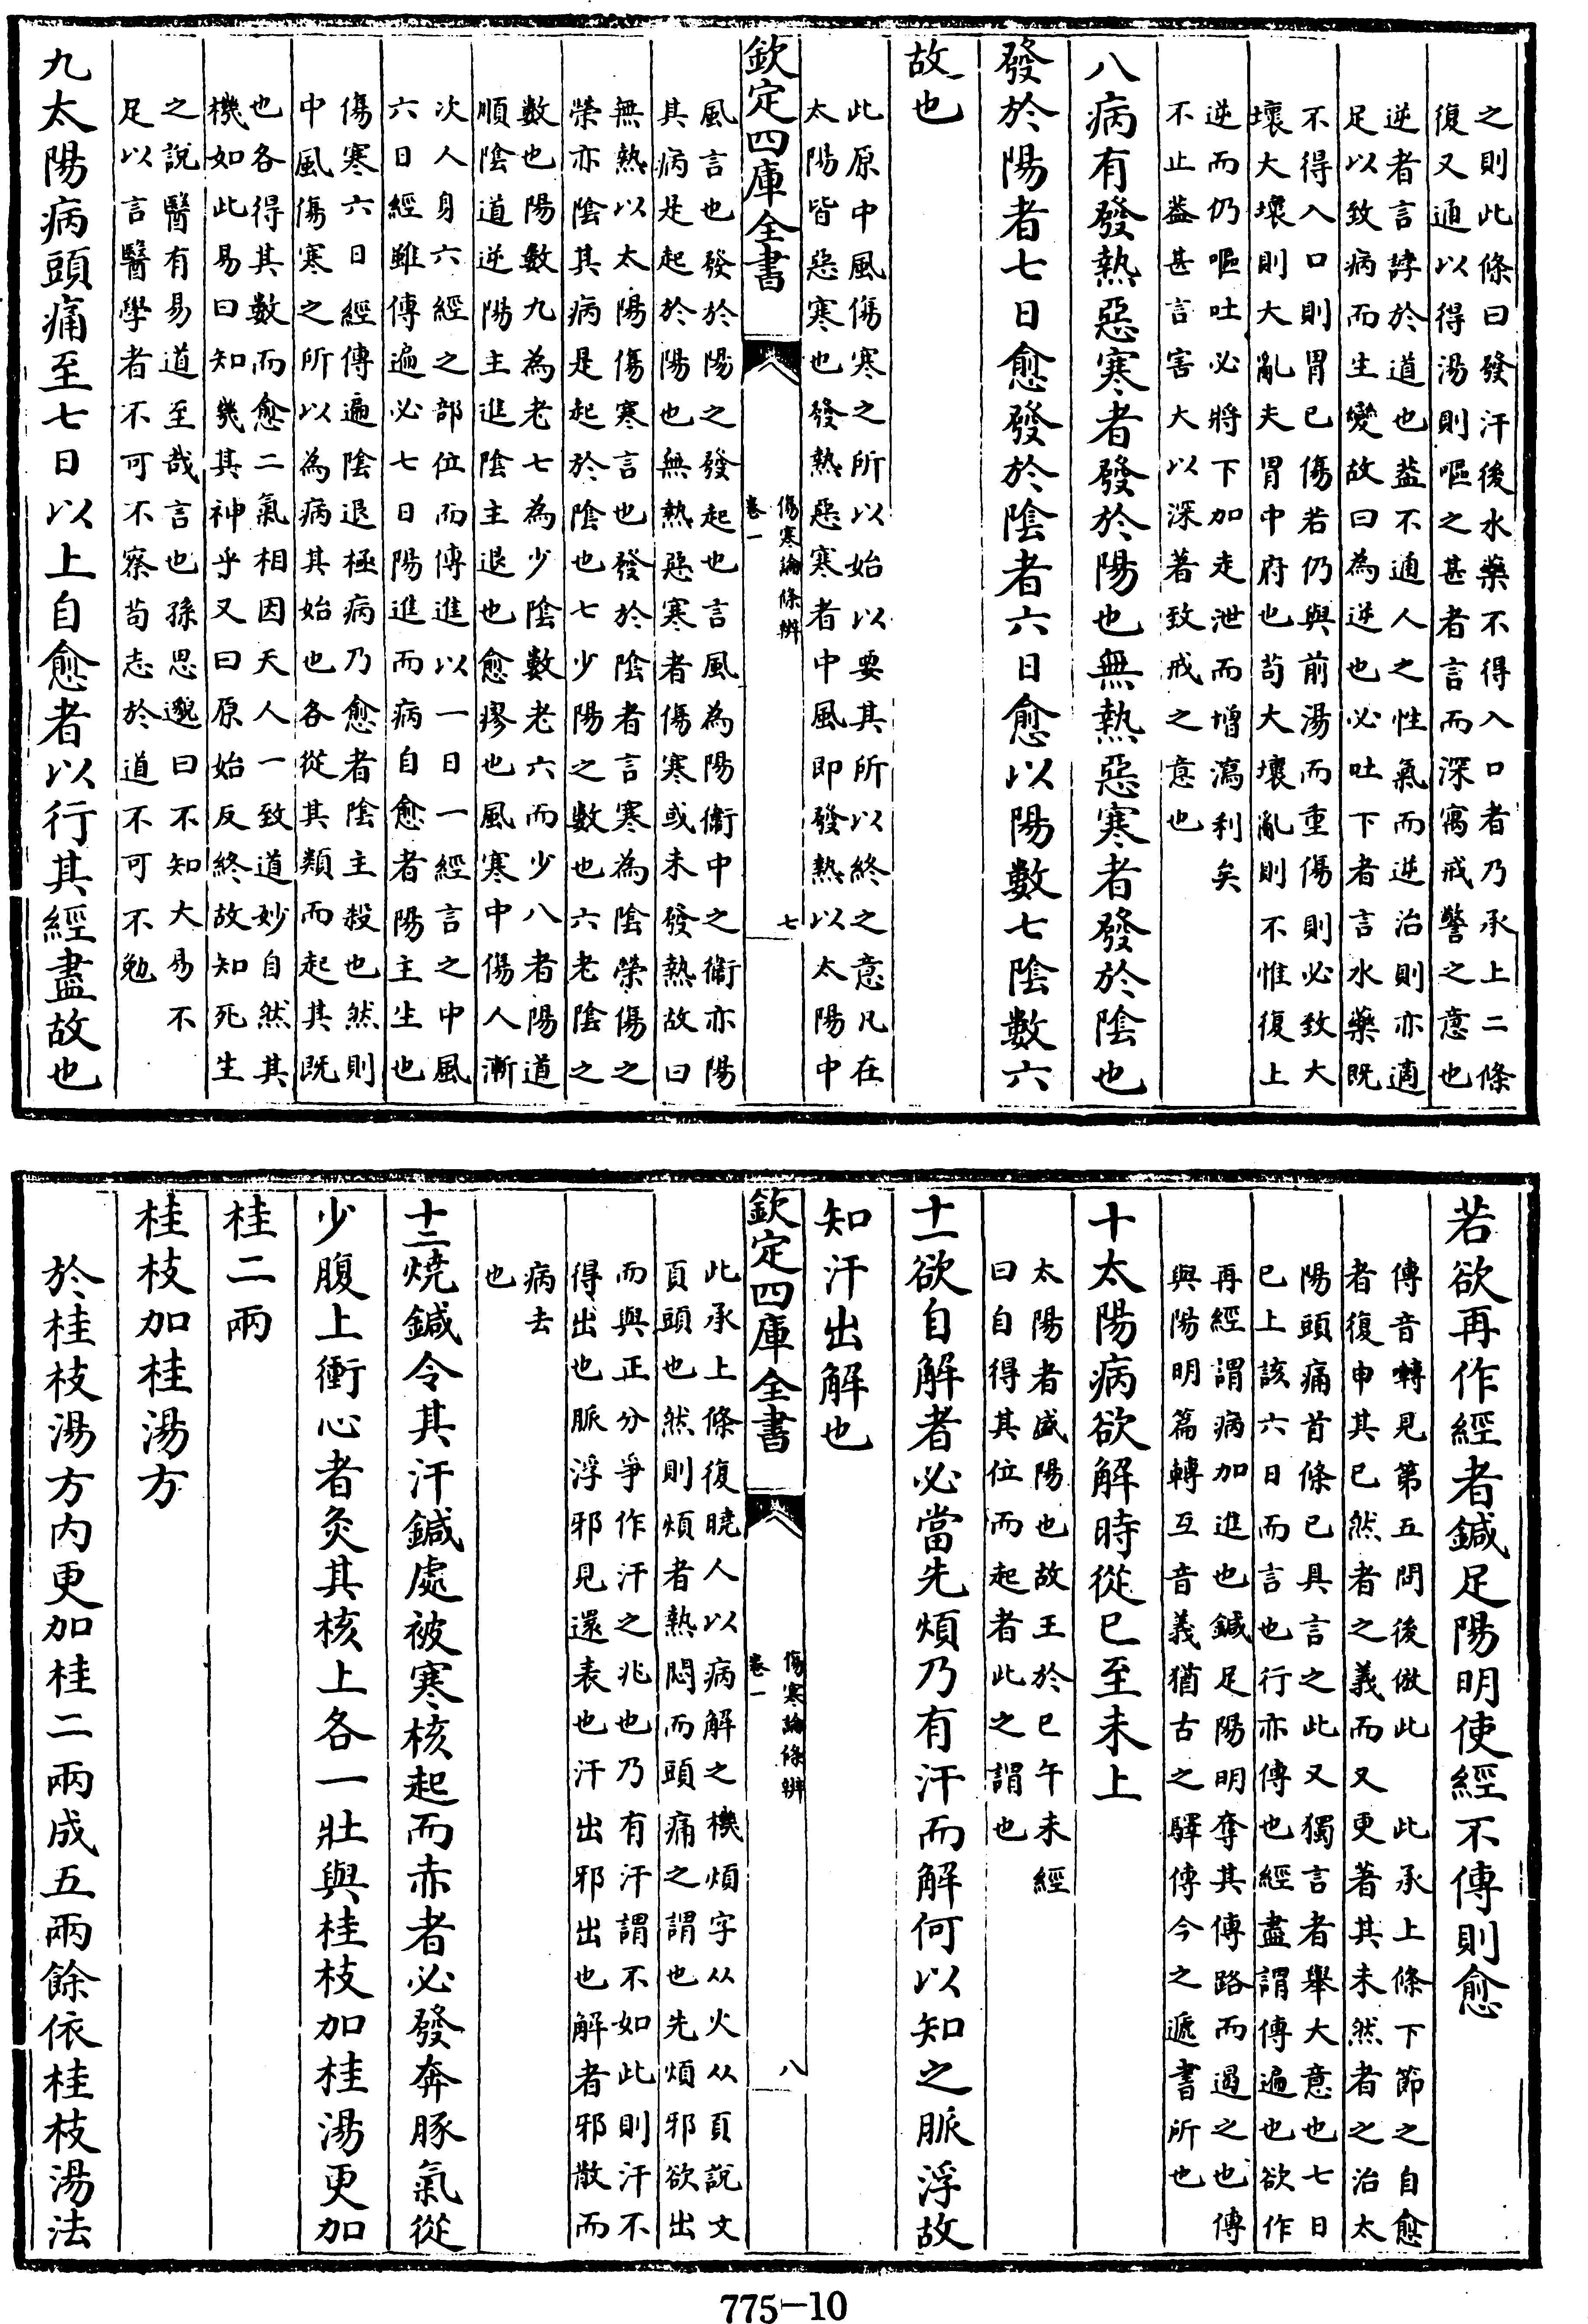 之則此條曰發汗後水藥不得入口者乃承上二條
復又通以得湯則嘔之甚者言而深寓戒警之意也
逆者言誖於道也葢不通人之性氣而逆治則亦適
足以致病而生變故曰為逆也必吐下者言水藥既
不得入口則胃已傷若仍與前湯而重傷則必致大
壞大壞則大亂夫胃中府也苟大壞亂則不惟復上
逆而仍嘔吐必將下加走泄而增瀉利矣
不止葢甚言害大以深著致戒之意也
八病有發熱惡寒者發於陽也無熱惡寒者發於陰也
發於陽者七日愈發於陰者六日愈以陽數七陰數六
故也
此原中風傷寒之所以始以要其所以終之意凡在
太陽皆惡寒也發熱惡寒者中風即發熱以太陽中
欽定四庫全書
傷寒論條辨
卷一
七
風言也發於陽之發起也言風為陽衞中之衞亦陽
其病是起於陽也無熱惡寒者傷寒或未發熱故曰
無熱以太陽傷寒言也發於陰者言寒為陰榮傷之
榮亦陰其病是起於陰也七少陽之數也六老陰之
數也陽數九為老七為少陰數老六而少八者陽道
順陰道逆陽主進陰主退也愈瘳也風寒中傷人漸
次人身六經之部位而傳進以一日一經言之中風
六日經雖傳遍必七日陽進而病自愈者陽主生也
傷寒六日經傳遍陰退極病乃愈者陰主殺也然則
中風傷寒之所以為病其始也各從其類而起其既
也各得其數而愈二氣相因天人一致道妙自然其
機如此易曰知幾其神乎又曰原始反終故知死生
之說醫有易道至哉言也孫思邈曰不知大易不
足以言醫學者不可不察苟志於道不可不勉
九太陽病頭痛至七日以上自愈者以行其經盡故也
若欲再作經者鍼足陽明使經不傳則愈
傳音轉見第五問後倣此 此承上條下節之自愈
者復申其已然者之義而又更著其未然者之治太
陽頭痛首條已具言之此又獨言者舉大意也七日
已上該六日而言也行亦傳也經盡謂傳遍也欲作
再經謂病加進也鍼足陽明奪其傳路而遏之也傳
與陽明篇轉互音義猶古之驛傳今之遞書所也
十太陽病欲解時從巳至未上
太陽者盛陽也故王於巳午未經
曰自得其位而起者此之謂也
十一欲自解者必當先煩乃有汗而解何以知之脈浮故
知汗出解也
欽定四庫全書
傷寒論條辨
卷一
八
此承上條復曉人以病解之機煩字从火从頁說文
頁頭也然則煩者熱悶而頭痛之謂也先煩邪欲出
而與正分爭作汗之兆也乃有汗謂不如此則汗不
得出也脈浮邪見還表也汗出邪出也解者邪散而
病去
也
十二燒鍼令其汗鍼處被寒核起而赤者必發奔豚氣從
少腹上衝心者灸其核上各一壯與桂枝加桂湯更加
桂二兩
桂枝加桂湯方
於桂枝湯方内更加桂二兩成五兩餘依桂枝湯法
775-10